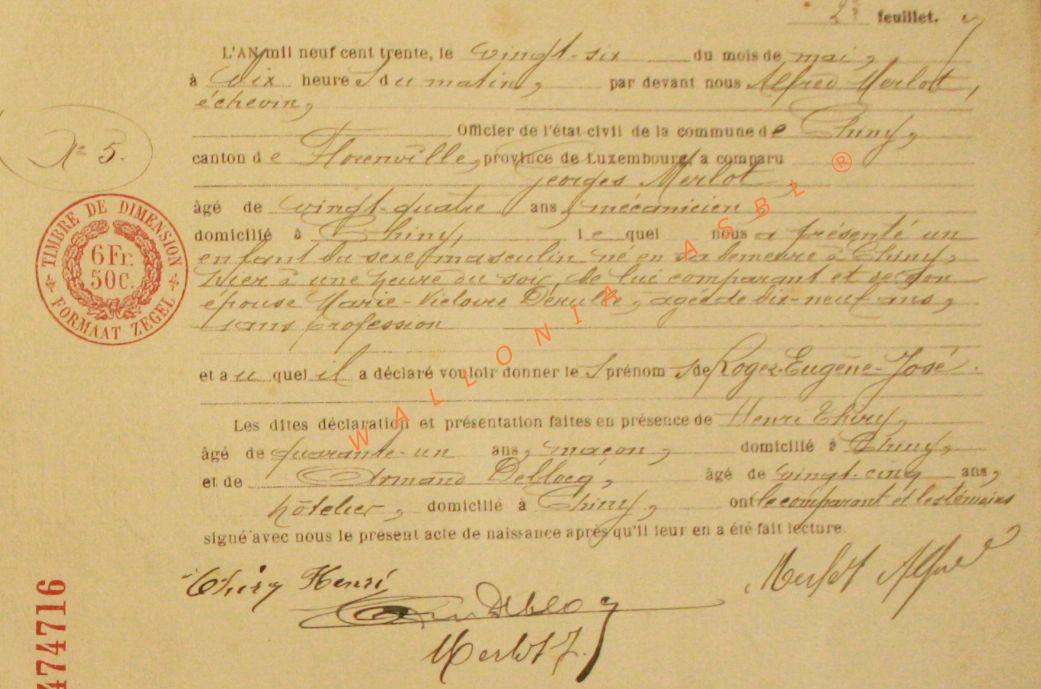 2e feuillet.
L'AN mil neuf cent trente, le vingt-six du mois de mai,
à dix heures du matin, par devant nous Alfred Merlot,
échevin,
Officier de l'état civil de la commune de Chiny,
canton de Florenville, province de Luxembourg, a comparu
Georges Merlot
âgé de vingt-quatre ans, mécanicien
domicilié à Chiny, lequel nous a présenté un
enfant du sexe masculin né en sa demeure à Chiny,
hier à une heure du soir, de lui comparant et de son
épouse Marie-Victoire, agée de dix-neuf ans,
sans profession
et auquel il a déclaré vouloir donner les prénoms de Roger-Eugène-José.
Les dites déclaration et présentation faites en présence de Henri Thiry,
âgé de quarante-un ans, maçon, domicilié à Chiny,
et de Armand Deblocq, âgé de vingt-cinq ans,
hôtelier, domicilié à Chiny, ont le comparant et les témoins
signé avec nous le présent acte de naissance après qu'il leur en a été fait lecture.
No 5.
TIMBRE DE DIMENSION
6 Fr.
50 c.
FORMAAT ZEGEL
WALLONIA ASBL ®
Thiry Henri
Merlot Alfred
Merlot J.
474716